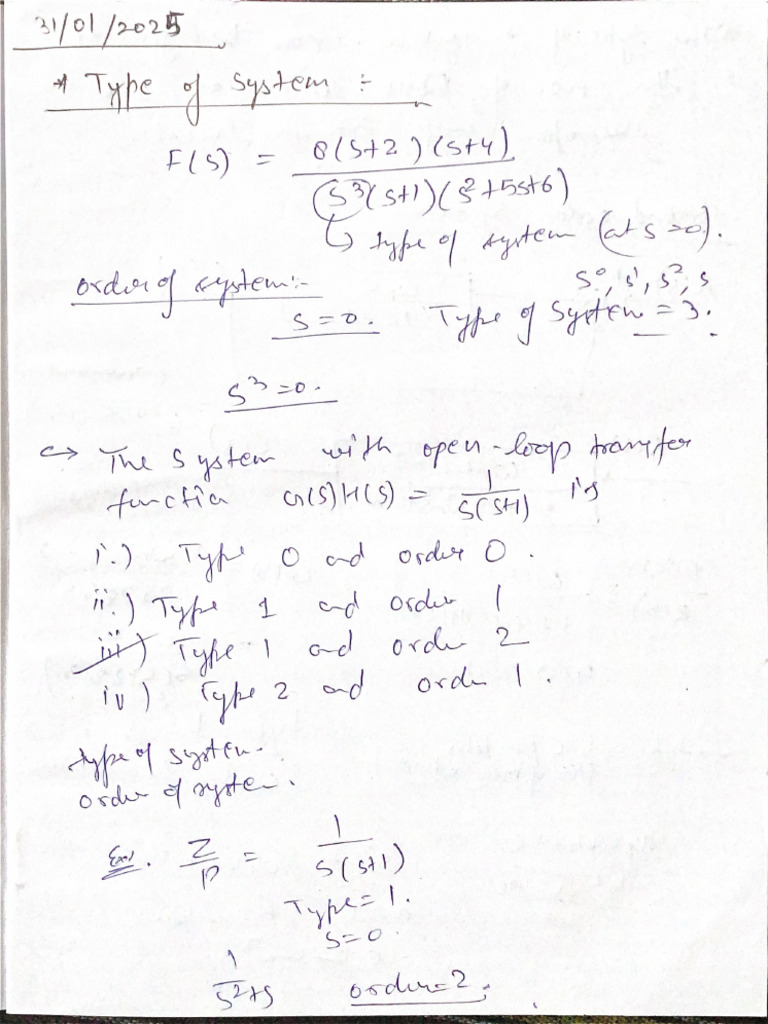 31/01/2025
* Type of System :-
F(s) = 8(s+2)(s+4)
s³(s+1)(s²+5s+6)
↳ type of system (at s=0).
order of system:-
s⁰, s¹, s², s
s=0. Type of System = 3.
s³=0.
↪ The System with open-loop transfer
function G(s)H(s) = 1/s(s+1) is
i.) Type 0 and order 0.
ii.) Type 1 and order 1
iii) Type 1 and order 2
iv) Type 2 and order 1.
type of system.
order of system.
Ex. Z/P = 1/s(s+1)
Type=1.
s=0.
1/s²+s order=2.